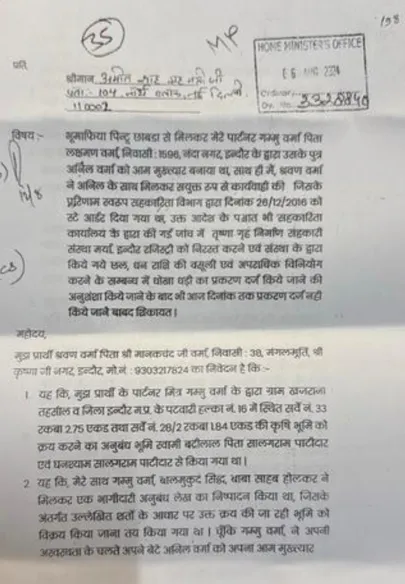 35
MP
198
HOME MINISTER'S OFFICE
06 AUG 2024
प्रति
श्रीमान अमीत शाह
पता:- 104, नार्थ ब्लाक, नई दिल्ली
110002
विषय :- भूमाफिया पिन्टू छाबडा से मिलकर मेरे पार्टनर गम्मु वर्मा पिता
लक्ष्मण वर्मा, निवासी : 1596, नंदा नगर, इन्दौर के द्वारा उसके पुत्र
अनिल वर्मा को आम मुख्त्यार बनाया था, साथ ही में, श्रवण वर्मा
ने अनिल के साथ मिलकर सयुक्त रूप से कार्यवाही की जिसके
परिणाम स्वरूप सहकारिता विभाग द्वारा दिनांक 26/12/2016 को
स्टे आर्डर दिया गया था, उक्त आदेश के पश्चात भी सहकारिता
कार्यालय के द्वारा की गई जांच में तृष्णा गृह निर्माण सहकारी
संस्था मर्या. इन्दौर रजिस्ट्री को निरस्त करने एवं संस्था के द्वारा
किये गये छल, धन राशि की वसूली एवं अपराधिक विनियोग
करने के सम्बन्ध में धोखा धड़ी का प्रकरण दर्ज किये जाने की
अनुशंषा किये जाने के बाद भी आज दिनांक तक प्रकरण दर्ज नहीं
किये जाने बाबद शिकायत।
महोदय,
मुझ प्रार्थी श्रवण वर्मा पिता श्री मानकचंद जी वर्मा, निवासी : 38, मंगलमूर्ति, श्री
कृष्णा जी नगर, इन्दौर, मो.नं. : 9303217824 का निवेदन है कि :-
1. यह कि, मुझ प्रार्थी के पार्टनर मित्र गम्मु वर्मा के द्वारा ग्राम खजराना
तहसील व जिला इन्दौर म.प्र. के पटवारी हल्का नं. 16 में स्थित सर्वे नं. 33
रकबा 2.75 एकड तथा सर्वे नं. 28/2 रकबा 1.84 एकड की कृषि भूमि को
क्रय करने का अनुबंध भूमि स्वामी बदीलाल पिता सालगराम पाटीदार
एवं घनश्याम सालगराम पाटीदार से किया गया था।
2. यह कि, मेरे साथ गम्मु वर्मा, बालमुकुट सिद्ध, बाबा साहब होलकर ने
मिलकर एक भागीदारी अनुबंध लेख का निष्पादन किया था, जिसके
अंतर्गत उल्लेखित शर्तो के आधार पर उक्त क्रय की जा रही भूमि को
विक्रय किया जाना तय किया गया था। चूँकि गम्मु वर्मा, ने अपनी
अस्वस्थता के चलते अपने बेटे अनिल वर्मा को अपना आम मुख्त्यार